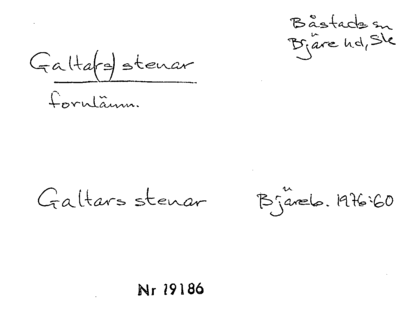 Båstads sn
Bjäre hd, Sk
Galta(rs) stenar
fornlämn.
Galtars stenar Bjäreb. 1976:60
Nr 19186